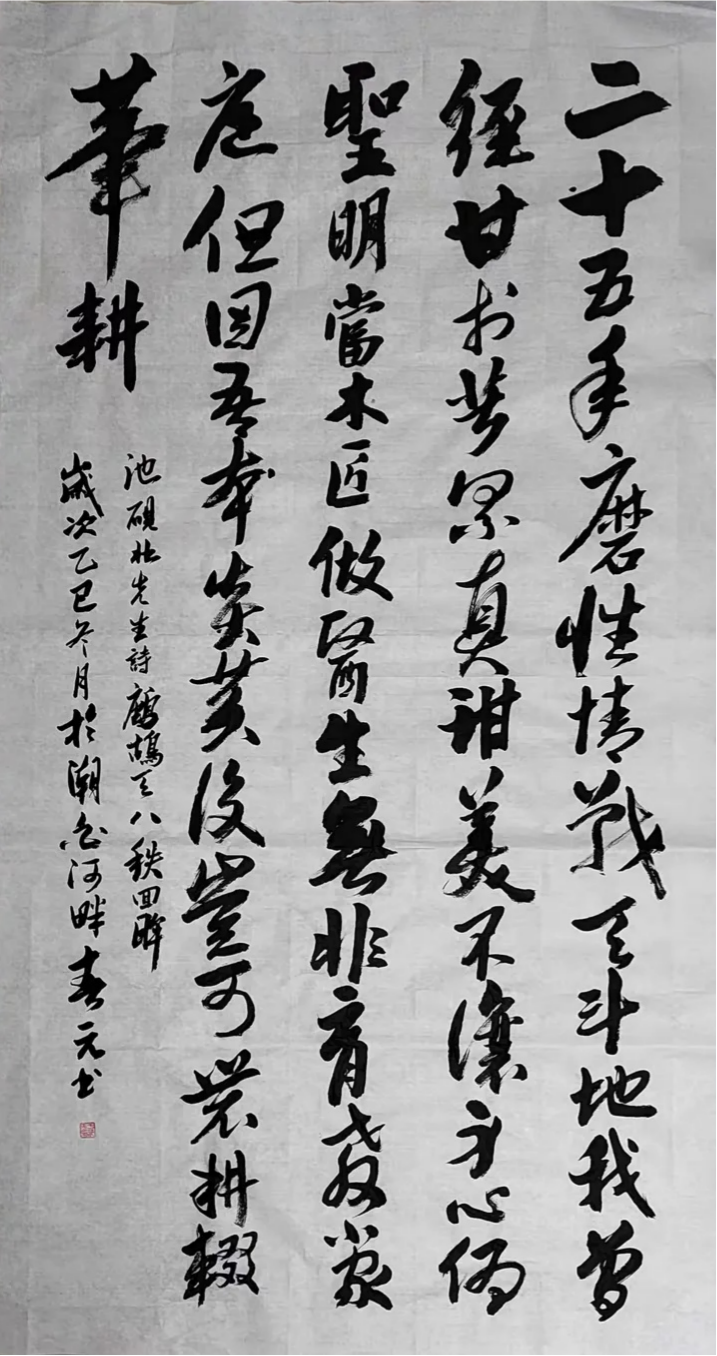 二十五年磨性情戰天斗地我曾
經甘於苦累真甜美不讓身心俩
聖明當木匠做醫生無非育教小家
庭但因吾本炎黃後豈可農耕輟
筆耕
池硯杜先生詩鷓鴣天八秩回眸
歲次乙巳冬月於潮白河畔春元书